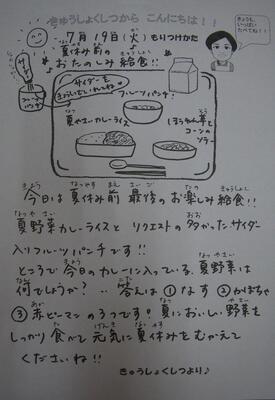 きゅうしょくしつから こんにちは！！
7月19日(火)もりつけかた
夏休み前の
おたのしみ給食!!
きょうも、
いっぱい
たべてね！
サイダー
フルーツポンチ
サイダーを
きょうしつでいれてね♡
フルーツパンチ
夏やさいカレーライス
ほうれん草と
コーンの
ソテー
今日は夏休み前 最後のお楽しみ給食!!
夏野菜カレーライスと リクエストの多かったサイダー
入りフルーツパンチです!!
ところで今日のカレーに入っている、夏野菜は
何でしょうか？‥答えは ①なす ②かぼちゃ
③赤ピーマンの3つです！夏においしい野菜を
しっかり食べて 元気に夏休みをむかえて
くださいね!!
きゅうしょくしつより♪